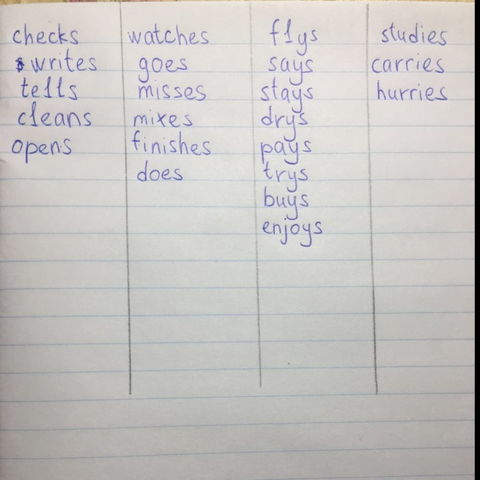 checks watches flys studies
writes goes says carries
tells misses stays hurries
cleans mixes drys
opens finishes pays
does trys
buys
enjoys